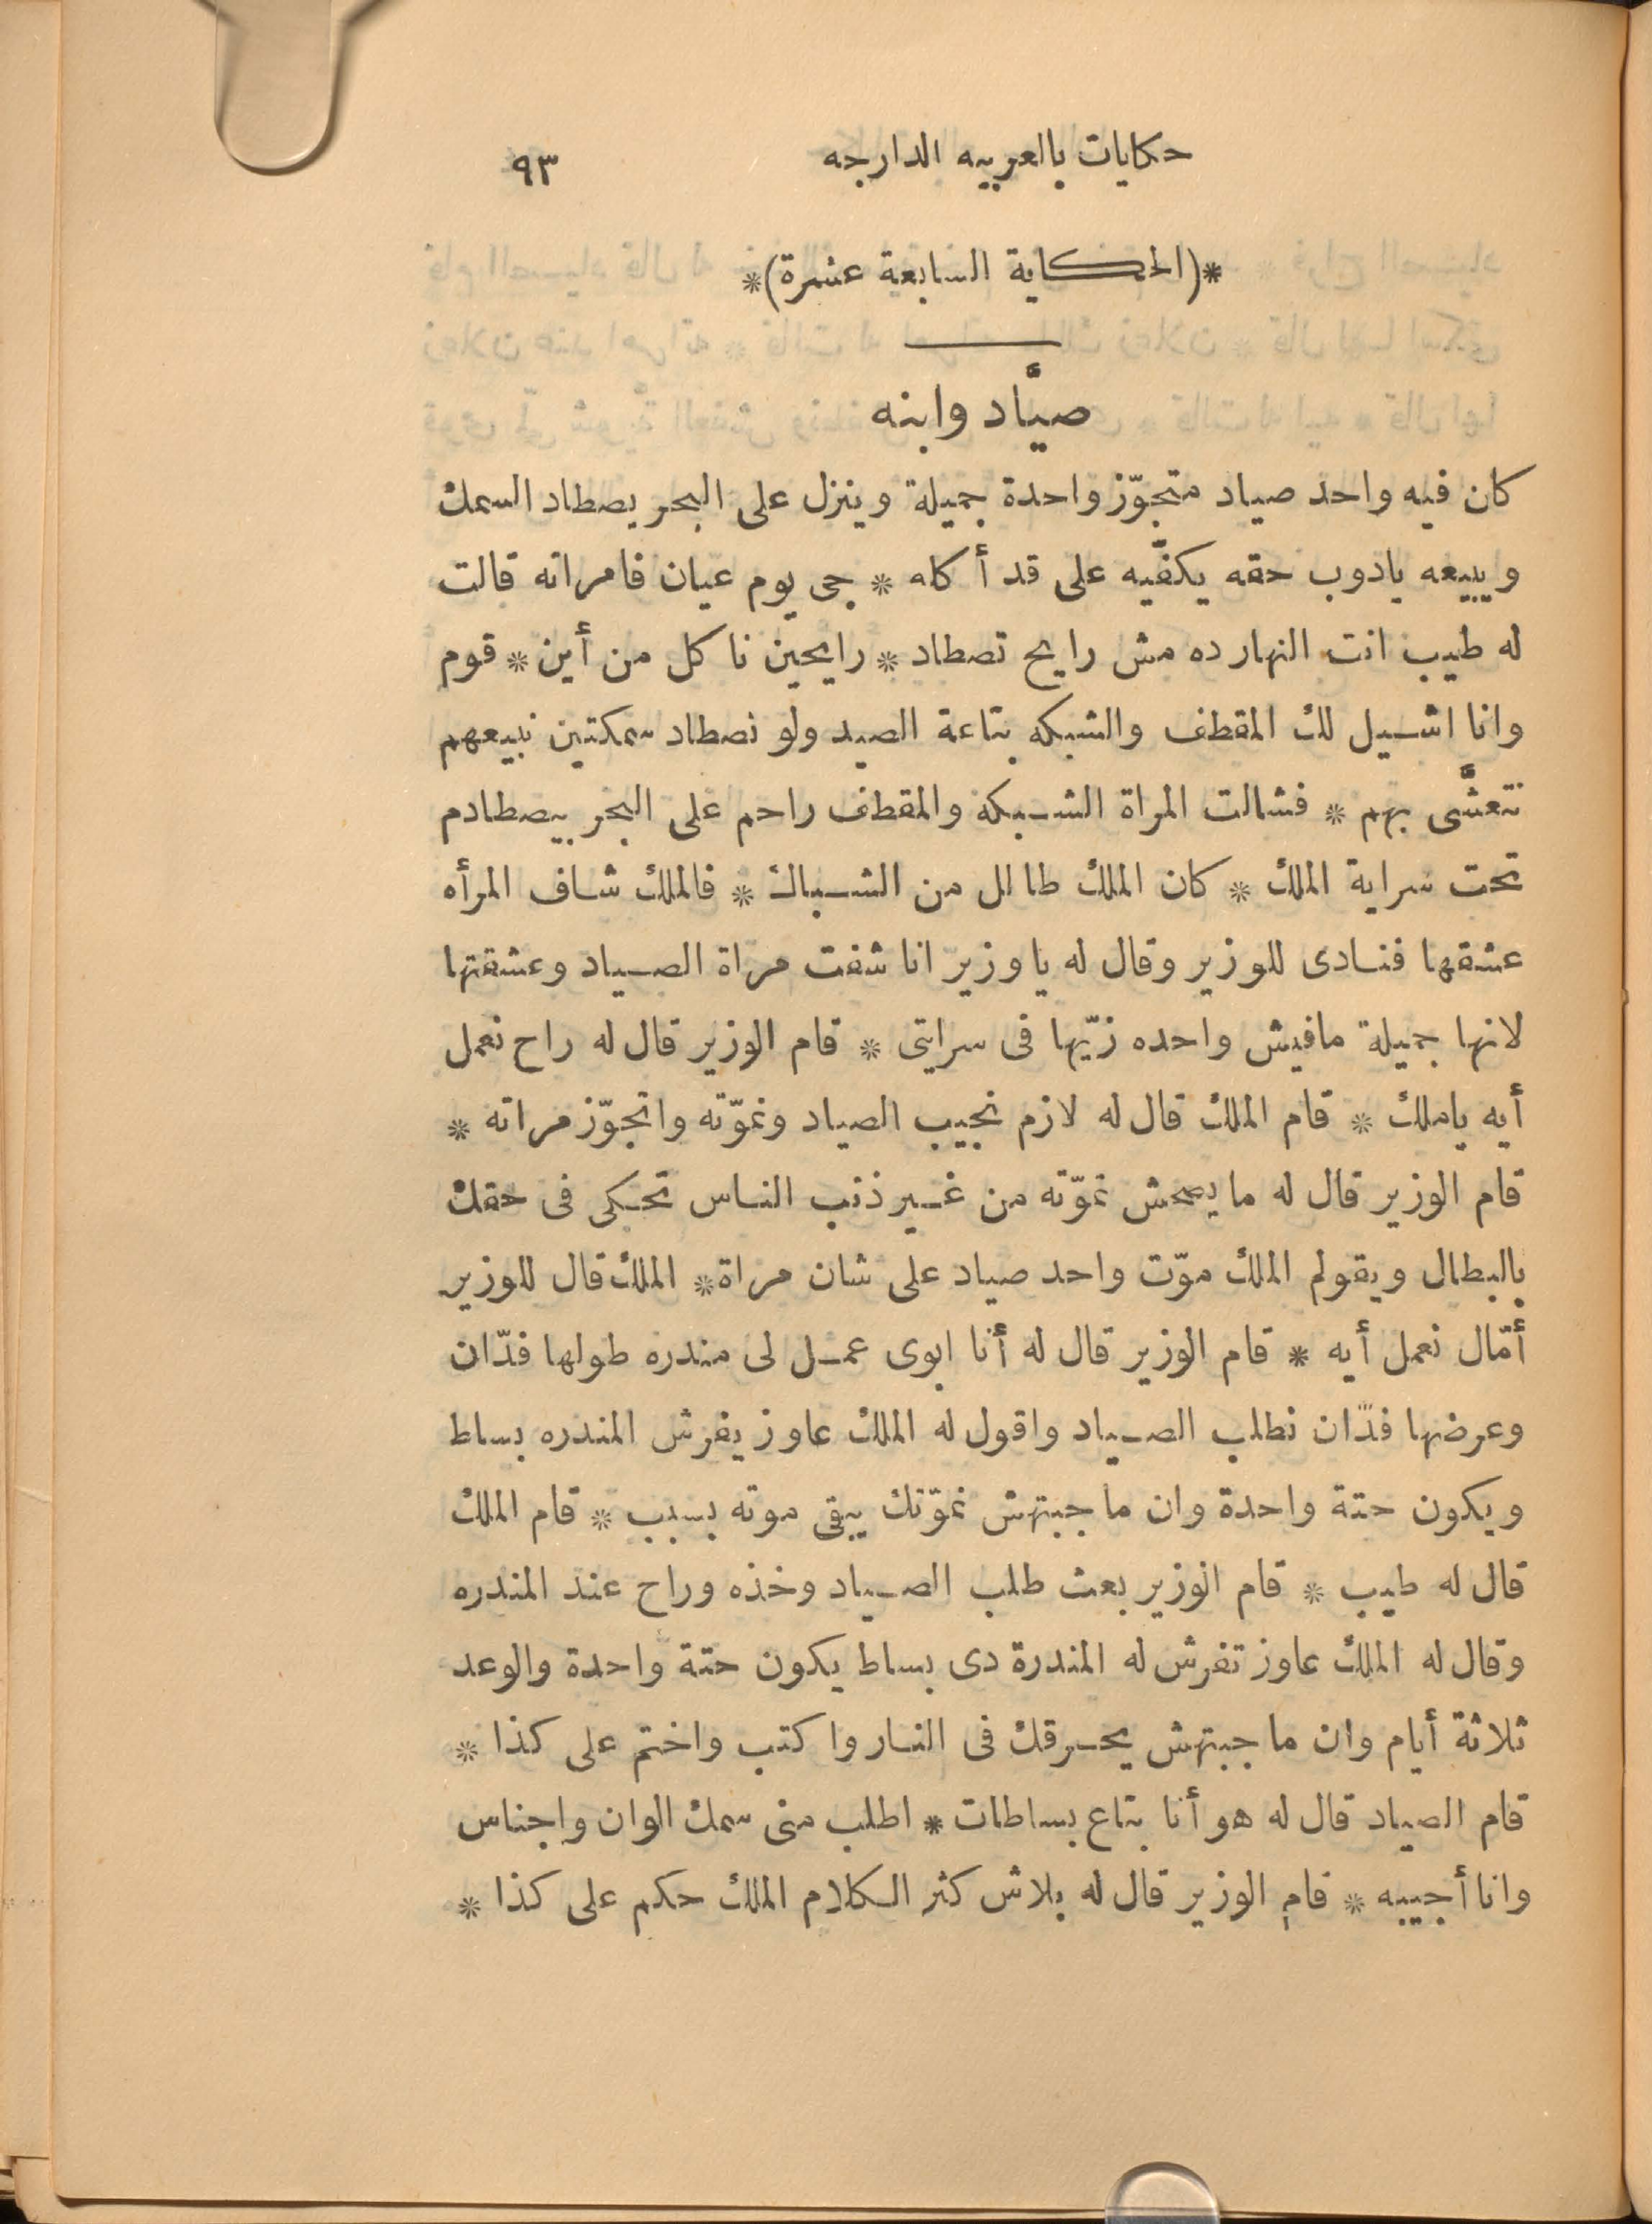 حكايات بالعربيه الدارجه ٩٣
*(الحكاية السابعة عشرة)*
صيَّاد وابنه
كان فيه واحد صياد متجوّز واحدة جميلة وينزل على البحر يصطاد السمك
ويبيعه يادوب حقه يكفّيه على قد أكله * جى يوم عيان فامراته قالت
له طيب انت النهارده مش رايح تصطاد * رايحين ناكل من أين * قوم
وانا اشيل لك المقطف والشبكه بتاعة الصيد ولو نصطاد سمكتين نبيعهم
نتعشَّى بهم * فشالت المراة الشبكة والمقطف راحم على البحر بيصطادم
تحت سراية الملك * كان الملك طالل من الشباك * فالملك شاف المرأه
عشقها فنادى للوزير وقال له ياوزير انا شفت مراة الصياد وعشقتها
لانها جميلة مافيش واحده زيّها فى سرايتى * قام الوزير قال له راح نعمل
أيه ياملك * قام الملك قال له لازم نجيب الصياد ونموّته واتجوّز مراته *
قام الوزير قال له ما يصحش نموّته من غير ذنب الناس تحكى فى حقك
بالبطال ويقولم الملك موّت واحد صياد على شان مراة * الملك قال للوزير
أمّال نعمل أيه * قام الوزير قال له أنا ابوى عمل لى مندره طولها فدّان
وعرضها فدّان نطلب الصياد واقول له الملك عاوز يفرش المندره بساط
ويكون حتة واحدة وان ما جبتهش نموّتك يبقى موته بسبب * قام الملك
قال له طيب * قام الوزير بعث طلب الصياد وخذه وراح عند المندره
وقال له الملك عاوز تفرش له المندرة دى بساط يكون حتة واحدة والوعد
ثلاثة أيام وان ما جبتهش يحرقك فى النار واكتب واختم على كذا *
قام الصياد قال له هو أنا بتاع بساطات * اطلب منى سمك الوان واجناس
وانا أجيبه * قام الوزير قال له بلاش كثر الكلام الملك حكم على كذا *